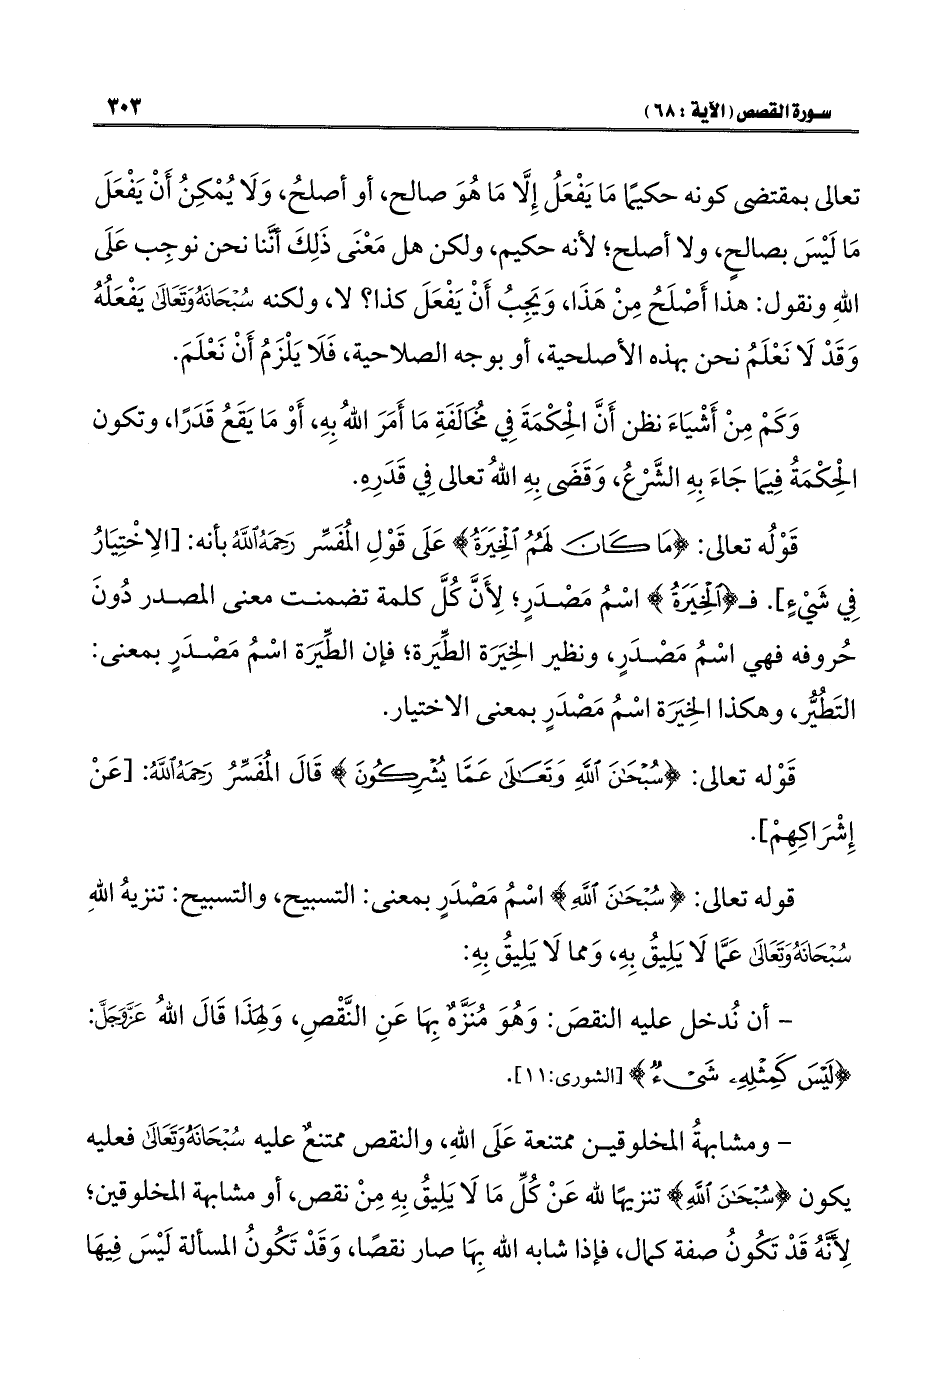 سورة القصص (الآية : ٦٨)
٣٠٣
تعالى بمقتضى كونه حكيمًا مَا يَفْعَلُ إِلَّا مَا هُوَ صالح، أو أصلحُ، وَلَا يُمْكِنُ أَنْ يَفْعَلَ
مَا لَيْسَ بصالحٍ، ولا أصلح؛ لأنه حكيم، ولكن هل مَعْنَى ذَلِكَ أَنَّنا نحن نوجِب عَلَى
اللهِ ونقول: هذا أَصْلَحُ مِنْ هَذَا، وَيَجِبُ أَنْ يَفْعَلَ كذا؟ لا، ولكنه سُبْحَانَهُ وَتَعَالَى يَفْعَلُهُ
وَقَدْ لَا نَعْلَمُ نحن بهذه الأصلحية، أو بوجه الصلاحية، فَلَا يَلْزَمُ أَنْ نَعْلَمَ.
وَكَمْ مِنْ أَشْيَاءَ نظن أَنَّ الْحِكْمَةَ فِي مُخَالَفَةِ مَا أَمَرَ اللهُ بِهِ، أَوْ مَا يَقَعُ قَدَرًا، وتكون
الْحِكْمَةُ فِيمَا جَاءَ بِهِ الشَّرْعُ، وَقَضَى بِهِ اللهُ تعالى فِي قَدَرِهِ.
قَوْلُه تعالى: ﴿مَا كَانَ لَهُمُ ٱلْخِيَرَةُ﴾ عَلَى قَوْلِ المُفَسِّر رَحِمَهُ ٱللَّهُ بأنه: [الِاخْتِيَارُ
فِي شَيْءٍ]. فـ﴿ٱلْخِيَرَةُ﴾ اسْمُ مَصْدَرٍ؛ لِأَنَّ كُلَّ كلمة تضمنت معنى المصدر دُونَ
حُروفه فهي اسْمُ مَصْدَرٍ، ونظير الخِيَرَة الطِّيَرة؛ فإن الطِّيَرَة اسْمُ مَصْدَرٍ بمعنى:
التَطُيُّر، وهكذا الخِيَرَة اسْمُ مَصْدَرٍ بمعنى الاختيار.
قَوْله تعالى: ﴿سُبْحَٰنَ ٱللَّهِ وَتَعَٰلَىٰ عَمَّا يُشْرِكُونَ﴾ قَالَ المُفَسِّرُ رَحِمَهُ ٱللَّهُ: [عَنْ
إِشْرَاكِهِمْ].
قوله تعالى: ﴿سُبْحَٰنَ ٱللَّهِ﴾ اسْمُ مَصْدَرٍ بمعنى: التسبيح، والتسبيح: تنزيهُ اللهِ
سُبْحَانَهُ وَتَعَالَى عَمَّا لَا يَلِيقُ بِهِ، وَمما لَا يَلِيقُ بِهِ:
– أن نُدخل عليه النقصَ: وَهُوَ مُنَزَّهٌ بِهَا عَنِ النَّقْصِ، وَلِهَذَا قَالَ اللهُ عَزَّ وَجَلَّ:
﴿لَيْسَ كَمِثْلِهِۦ شَىْءٌ﴾ [الشورى:١١].
– ومشابهةُ المخلوقين ممتنعة عَلَى اللهِ، والنقص ممتنعٌ عليه سُبْحَانَهُ وَتَعَالَى فعليه
يكون ﴿سُبْحَٰنَ ٱللَّهِ﴾ تنزيهًا لله عَنْ كُلِّ مَا لَا يَلِيقُ بِهِ مِنْ نقص، أو مشابهة المخلوقين؛
لِأَنَّهُ قَدْ تَكُونُ صفة كمال، فإذا شابه الله بِهَا صار نقصًا، وَقَدْ تَكُونُ المسألة لَيْسَ فِيهَا